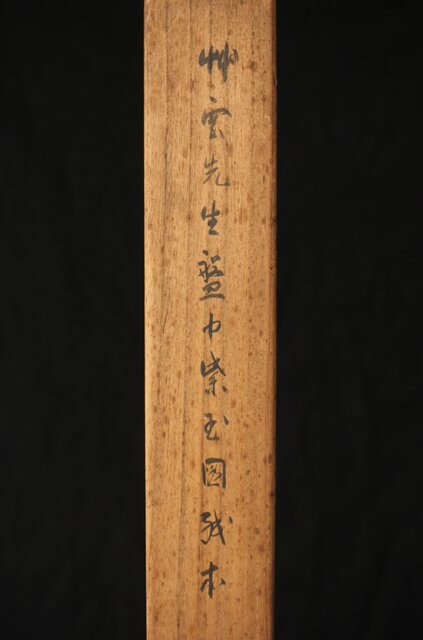 艸雲先生盤中紫玉図绒本